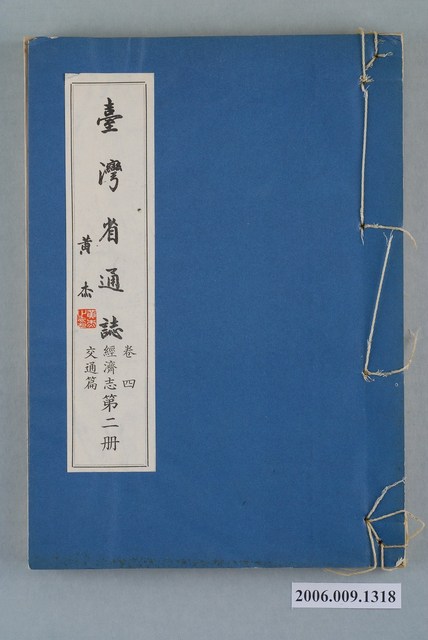 臺灣省通誌
黄杰
卷四
經濟志
交通篇
第二册
2006.009.1318